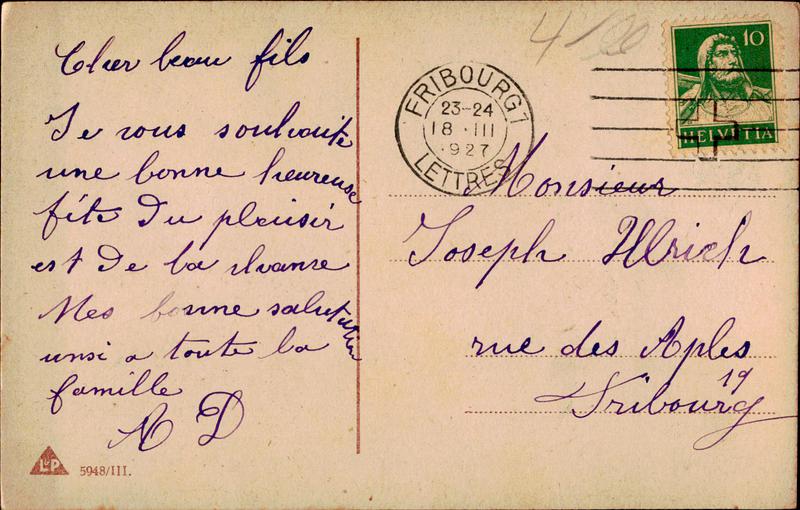 Cher beau fils
Je vous souhaite
une bonne heureuse
fête Du plaisir
est De la chanse
Mes bonne salutation
unsi a toute la
famille
A D
L&P 5948/III.
4
FRIBOURG 1
23-24
18 · III
·927
LETTRES
10
HELVETIA
Monsieur
Joseph Ulrich
rue des Aples
19
Fribourg